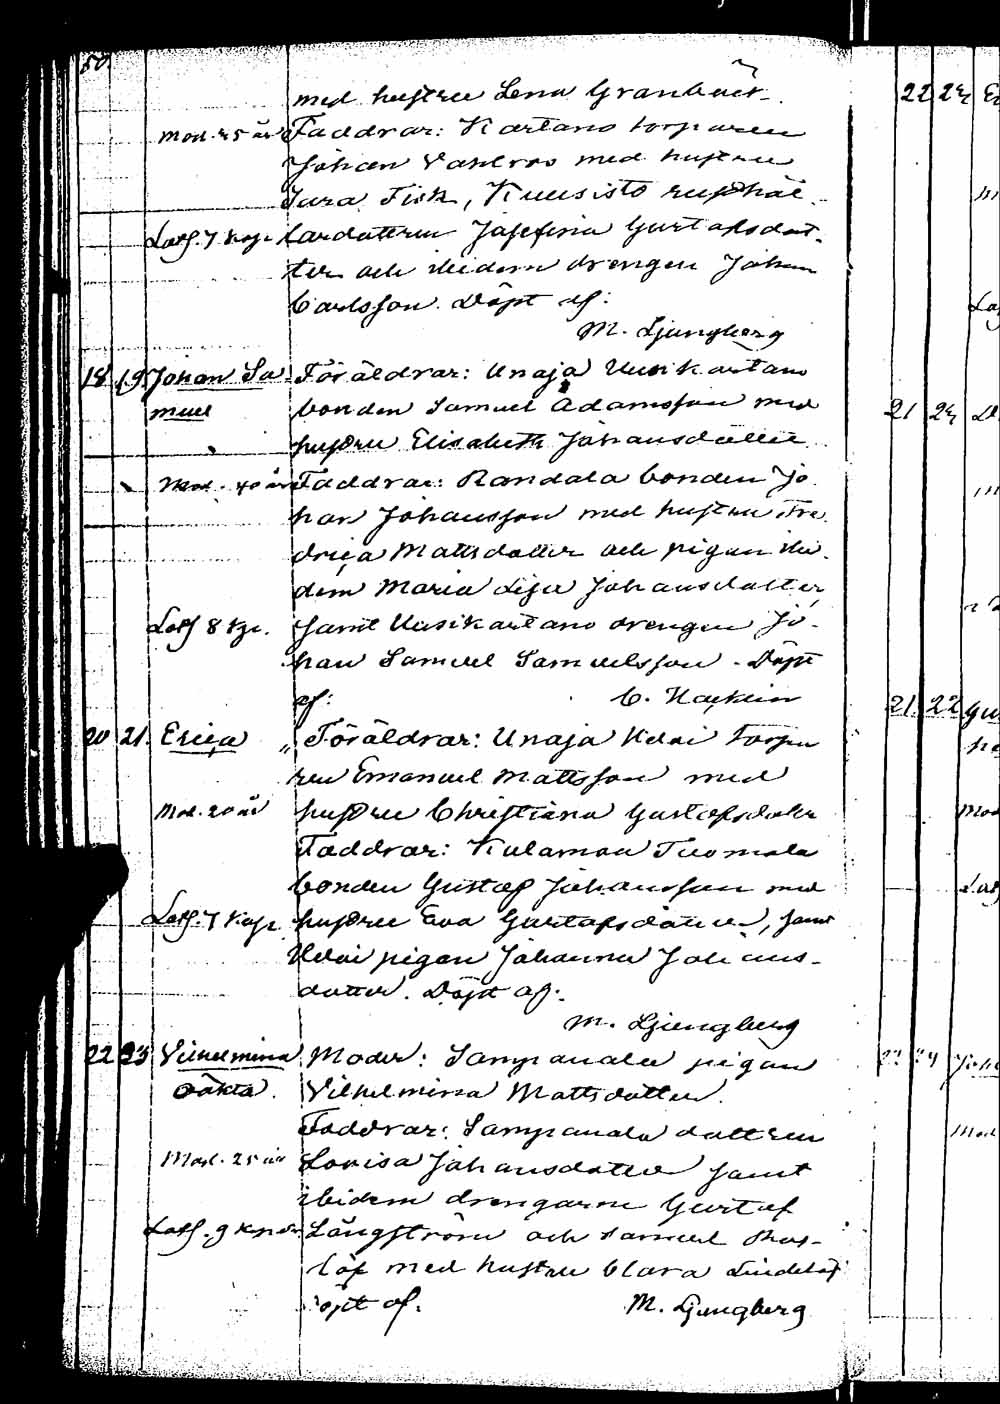 50.
med hustru Lena Granbäck.
Mod. 25 år Faddrar: Kartano torparen
Johan Vahlroo med hustru
Sara Fisk, Kuusisto
Josefina Gustafsdot-
ter och ibidem drengen Johan
Carlsson. Döpt af:
M. Ljungberg
18. 19. Johan Sa- Föräldrar: Unaja Uusikartano
muel bonden Samuel Adamsson med
hustru Elisabeth Johansdotter
Mod. 40 år Faddrar: Randala bonden Jo-
han Johansson med hustru Fre-
drica Mattsdotter och pigan ibi-
dem Maria Lisa Johansdotter
samt Uusikartano drengen Jo-
han Samuel Samuelsson. Döpt
af:
20 21. Erica Föräldrar: Unaja torpa-
ren Emanuel Mattsson med
Mod. 20 år hustru Christina Gustafsdotter
Faddrar: Kulamaa Tuomola
bonden Gustaf Johansson med
hustru Eva Gustafsdotter, samt
pigan Johanna Johans-
dotter. Döpt af:
M. Ljungberg
22 23 Vilhelmina Moder: Sampanala pigan
oäkta. Vilhelmina Mattsdotter.
Faddrar: Sampanala dottren
Mod. 25 år Lovisa Johansdotter samt
ibidem drengarne Gustaf
Långström och Samuel Ros-
löf med hustru Clara Lindelöf
Döpt af. M. Ljungberg
22 24
21 24
21. 22
22 24